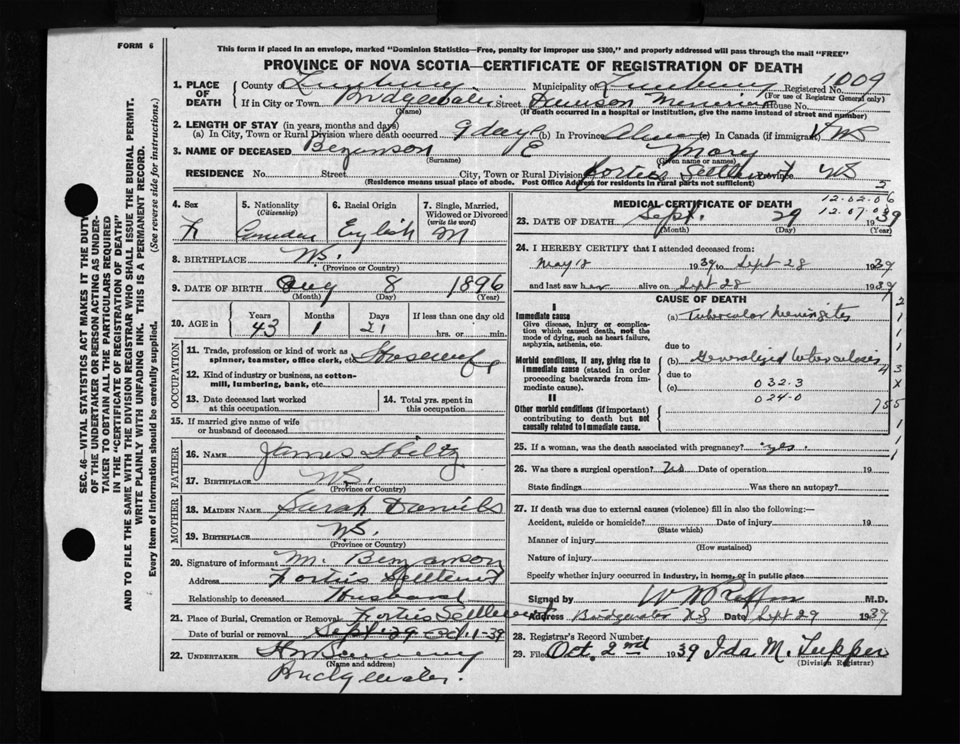 FORM 6
This form if placed in an envelope, marked "Dominion Statistics—Free, penalty for improper use $300," and properly addressed will pass through the mail "FREE"
PROVINCE OF NOVA SCOTIA—CERTIFICATE OF REGISTRATION OF DEATH
SEC. 46—VITAL STATISTICS ACT MAKES IT THE DUTY
OF THE UNDERTAKER OR PERSON ACTING AS UNDER-
TAKER TO OBTAIN ALL THE PARTICULARS REQUIRED
IN THE "CERTIFICATE OF REGISTRATION OF DEATH"
AND TO FILE THE SAME WITH THE DIVISION REGISTRAR WHO SHALL ISSUE THE BURIAL PERMIT.
WRITE PLAINLY WITH UNFADING INK. THIS IS A PERMANENT RECORD.
Every item of Information should be carefully supplied. (See reverse side for instructions.)
1. PLACE OF DEATH County of Lunenburg Municipality of Lunenburg Registered No. 1009
(For use of Registrar General only)
If in City or Town Bridgewater Street Dawson Memorial House No.
(Name) (If death occurred in a hospital or institution, give the name instead of street and number)
2. LENGTH OF STAY (in years, months and days)
(a) In City, Town or Rural Division where death occurred 9 days (b) In Province Always (c) In Canada (if immigrant)
3. NAME OF DECEASED Bezanson E Mary
(Surname) (Given name or names)
RESIDENCE No. Street City, Town or Rural Division Forties Settlement Province NS
(Residence means usual place of abode. Post Office Address for residents in rural parts not sufficient)
4. Sex F
5. Nationality (Citizenship) Canadian
6. Racial Origin English
7. Single, Married, Widowed or Divorced (write the word) M
8. BIRTHPLACE N.S.
(Province or Country)
9. DATE OF BIRTH Aug 8 1896
(Month) (Day) (Year)
10. AGE in Years Months Days If less than one day old
43 1 21 hrs. or min.
OCCUPATION
11. Trade, profession or kind of work as spinner, teamster, office clerk, etc. Housewife
12. Kind of industry or business, as cotton-mill, lumbering, bank, etc.
13. Date deceased last worked at this occupation
14. Total yrs. spent in this occupation
15. If married give name of wife or husband of deceased
FATHER
16. NAME James
17. BIRTHPLACE N.S.
(Province or Country)
MOTHER
18. MAIDEN NAME Sarah Daniels
19. BIRTHPLACE N.S.
(Province or Country)
20. Signature of informant M. Bezanson
Address Forties Settlement
Relationship to deceased Husband
21. Place of Burial, Cremation or Removal Forties Settlement
Date of burial or removal
22. UNDERTAKER
(Name and address)
Bridgewater.
MEDICAL CERTIFICATE OF DEATH
12.02.06
23. DATE OF DEATH Sept. 29 1939
(Month) (Day) (Year)
24. I HEREBY CERTIFY that I attended deceased from:
May 18 1939 to Sept 28 1939
and last saw her alive on Sept 28 1939
CAUSE OF DEATH
I
Immediate cause
Give disease, injury or complication which caused death, not the mode of dying, such as heart failure, asphyxia, asthenia, etc.
(a) Tubercular Meningitis
due to
Morbid conditions, if any, giving rise to immediate cause (stated in order proceeding backwards from immediate cause).
(b) Generalized tuberculosis
due to
(c) 032.3
024-0
II
Other morbid conditions (if important) contributing to death but not causally related to immediate cause.
25. If a woman, was the death associated with pregnancy? yes.
26. Was there a surgical operation? No Date of operation 19
State findings Was there an autopsy?
27. If death was due to external causes (violence) fill in also the following:—
Accident, suicide or homicide? Date of injury 19
(State which)
Manner of injury
(How sustained)
Nature of injury
Specify whether injury occurred in industry, in home, or in public place
Signed by M.D.
Address Bridgewater NS Date Sept 29 1939
28. Registrar's Record Number
29. Filed Oct. 2nd 1939 Ida M. Tupper
(Division Registrar)